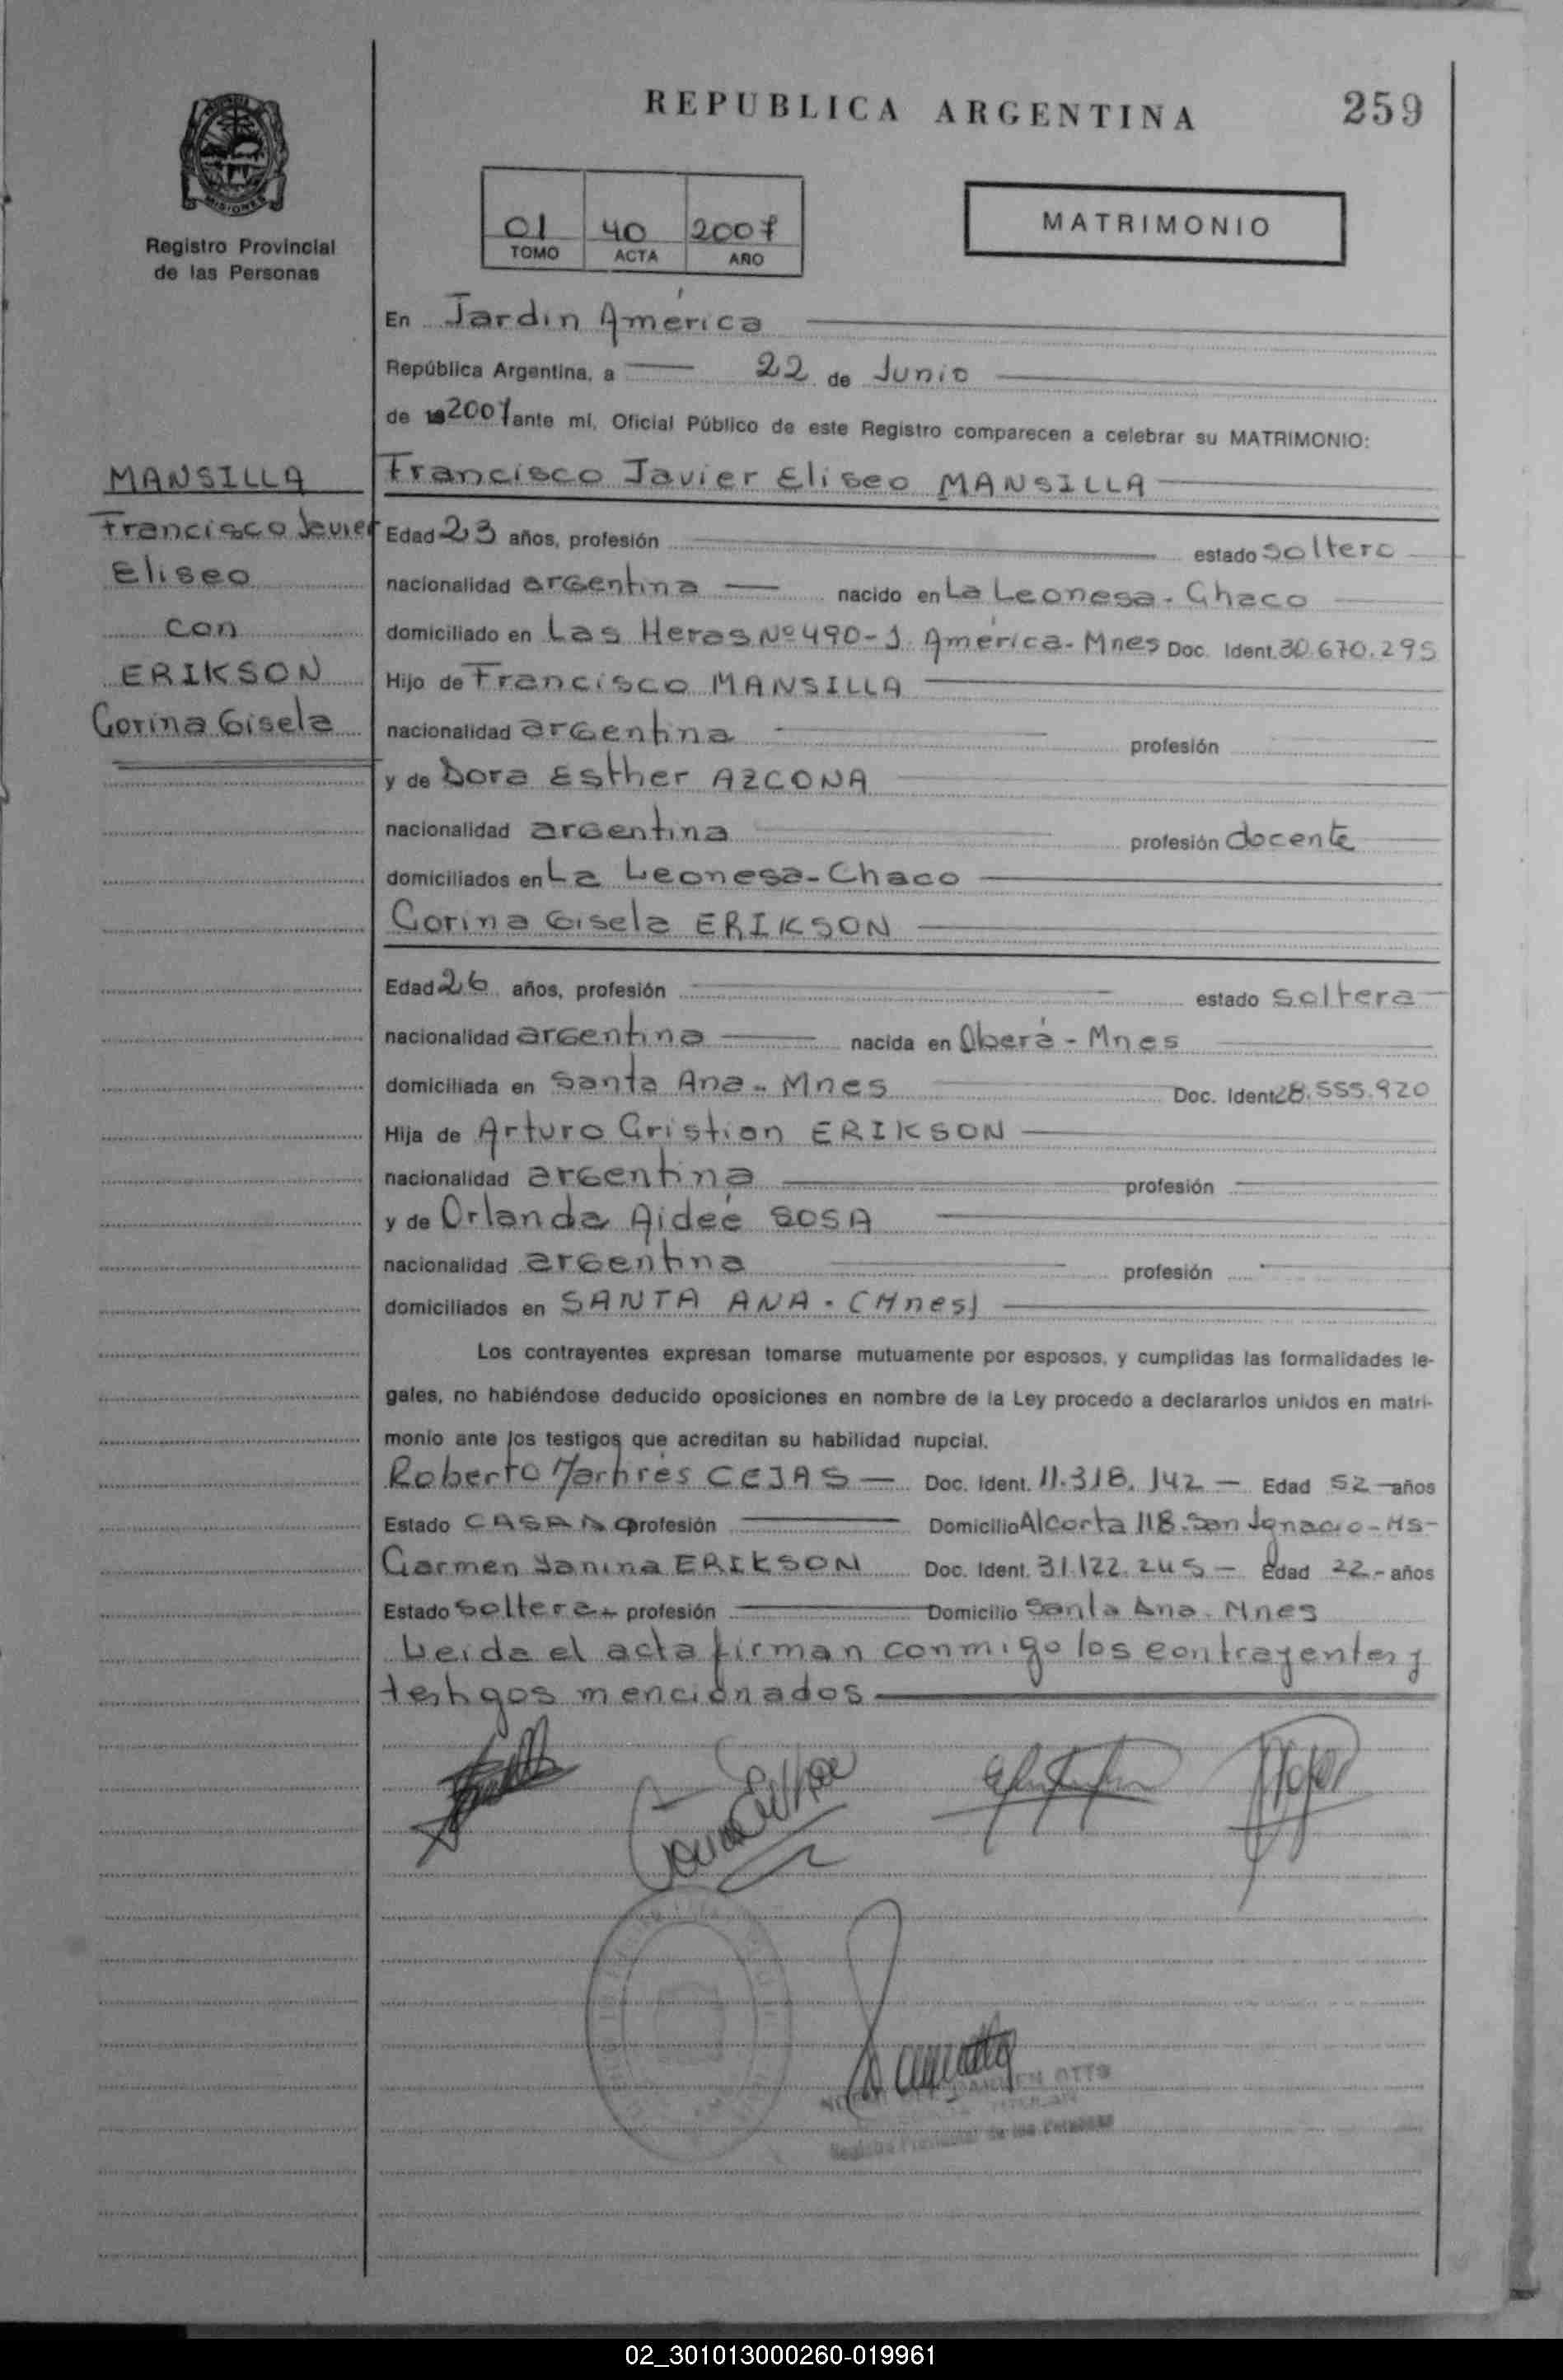 REPUBLICA ARGENTINA
259
MISIONES
Registro Provincial
de las Personas
01 40 2007
TOMO ACTA AÑO
MATRIMONIO
En Jardin América
República Argentina, a 22 de Junio
de 19 2007 ante mí, Oficial Público de este Registro comparecen a celebrar su MATRIMONIO:
MANSILLA
Francisco Javier
Eliseo
con
ERIKSON
Corina Gisela
Francisco Javier Eliseo MANSILLA
Edad 23 años, profesión estado soltero
nacionalidad argentina nacido en La Leonesa - Chaco
domiciliado en Las Heras Nº 490 - J. América - Mnes Doc. Ident. 30.670.295
Hijo de Francisco MANSILLA
nacionalidad argentina profesión
y de Dora Esther AZCONA
nacionalidad argentina profesión docente
domiciliados en La Leonesa - Chaco
Corina Gisela ERIKSON
Edad 26 años, profesión estado soltera
nacionalidad argentina nacida en Oberá - Mnes
domiciliada en Santa Ana - Mnes Doc. Ident. 28.555.920
Hija de Arturo Cristian ERIKSON
nacionalidad argentina profesión
y de Orlanda Aideé SOSA
nacionalidad argentina profesión
domiciliados en SANTA ANA - (Mnes)
Los contrayentes expresan tomarse mutuamente por esposos, y cumplidas las formalidades le-
gales, no habiéndose deducido oposiciones en nombre de la Ley procedo a declararlos unidos en matri-
monio ante los testigos que acreditan su habilidad nupcial.
Roberto Martires CEJAS — Doc. Ident. 11.318.142 — Edad 52 años
Estado CASADO profesión Domicilio Alcorta 118. San Ignacio - Ms -
Carmen Yanina ERIKSON Doc. Ident. 31.122.245 — Edad 22 - años
Estado soltera profesión Domicilio Santa Ana - Mnes
Leida el acta firman conmigo los contrayentes y
testigos mencionados
OTTO
Registro Provincial de las Personas
02_301013000260-019961